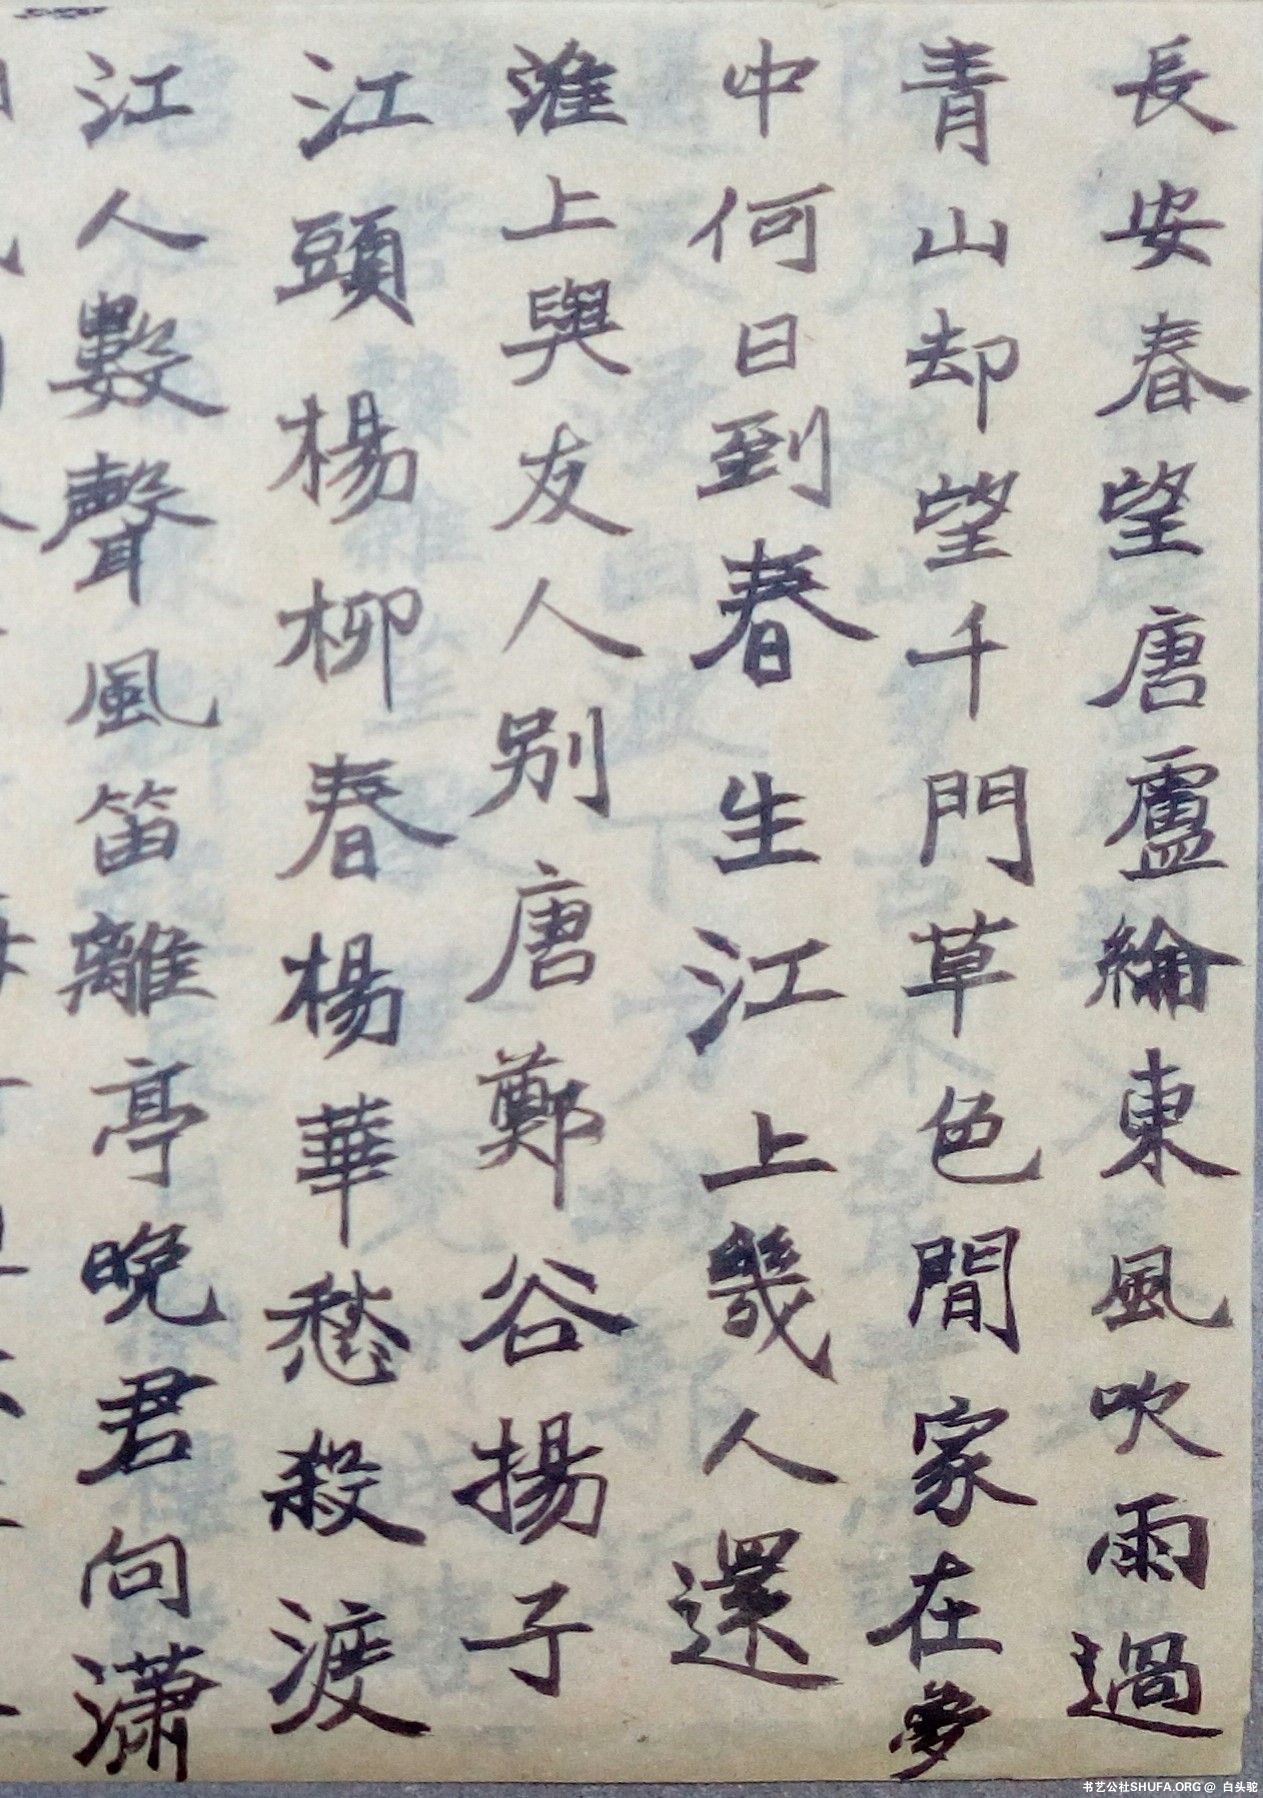 長安春望唐盧綸東風吹雨過
青山却望千門草色閒家在夢
中何日到春生江上幾人還
淮上與友人别唐鄭谷揚子
江頭楊柳春楊華愁殺渡
江人數聲風笛離亭晚君向瀟
书艺公社SHUFA.ORG @ 白头驼